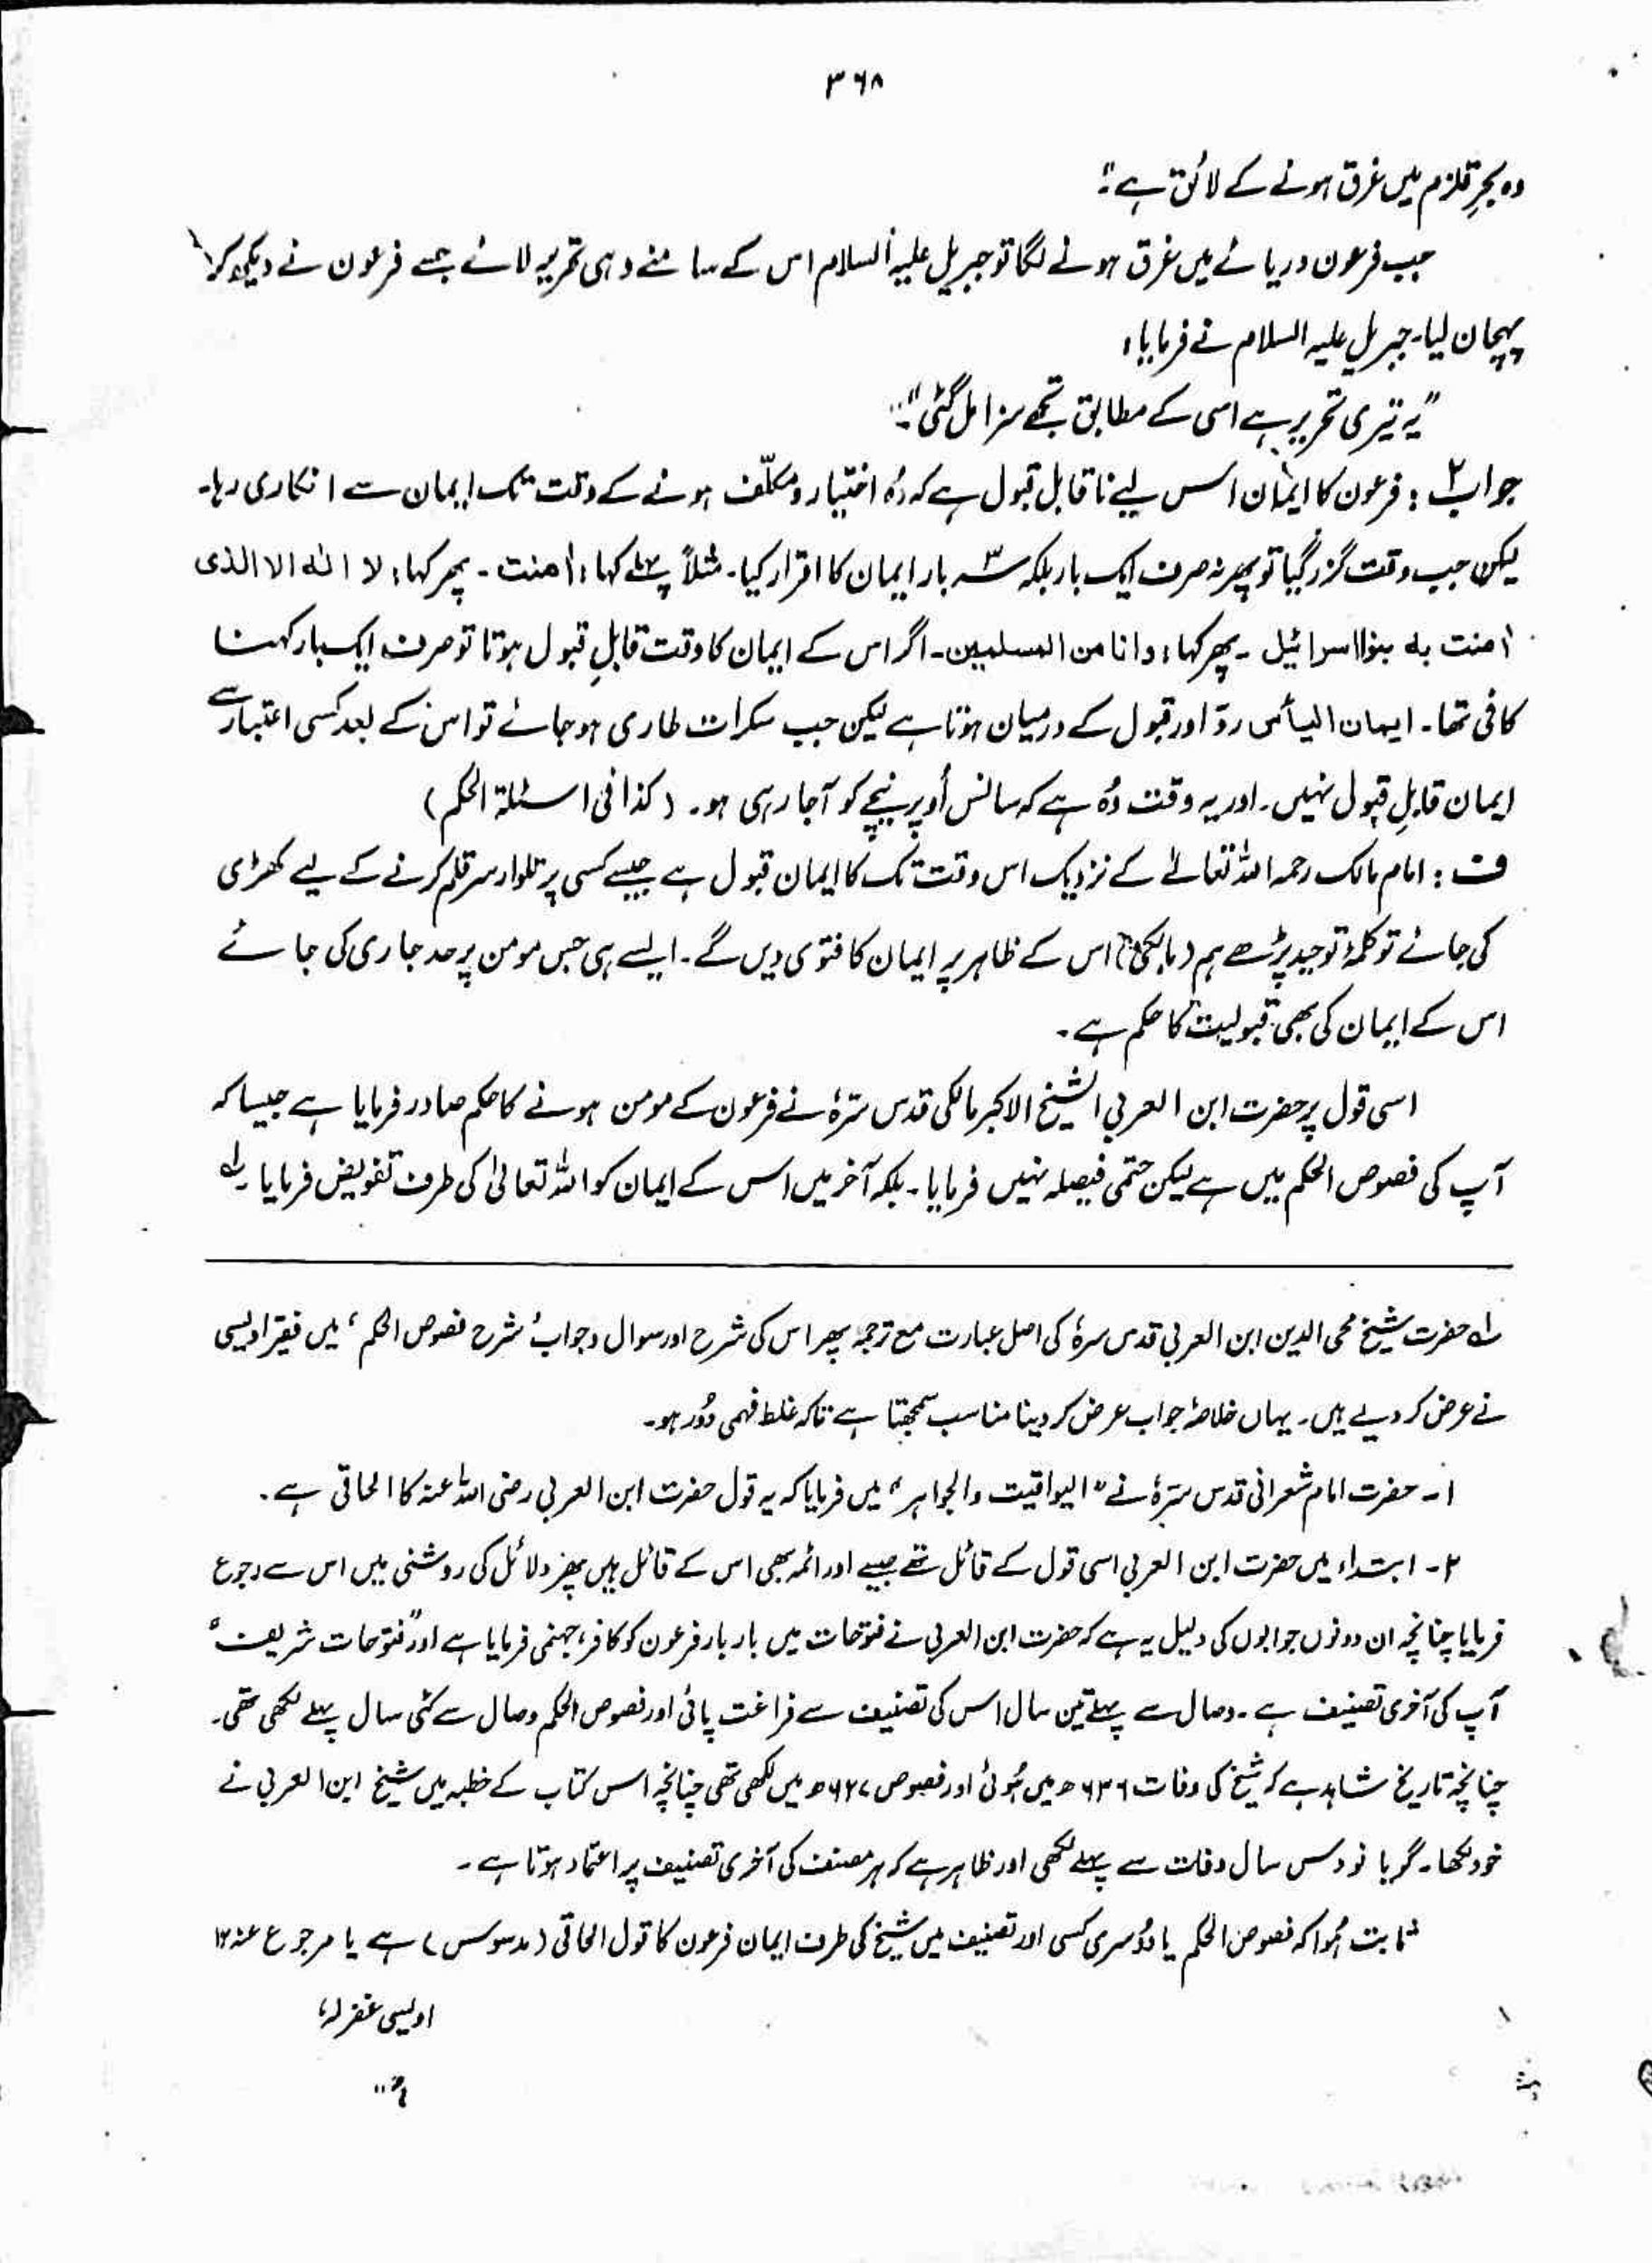 ۳۶۸
وہ بحرِ قلزم میں غرق ہونے کے لائق ہے"۔
جب فرعون دریائے میں غرق ہونے لگا تو جبریل علیہ السلام اس کے سامنے وہی تحریر لائے جسے فرعون نے دیکھ کر
پہچان لیا۔ جبریل علیہ السلام نے فرمایا:
"یہ تیری تحریر ہے اسی کے مطابق تجھے سزا مل گئی"۔
جواب۲ : فرعون کا ایمان اس لیے ناقابل قبول ہے کہ وُہ اختیار و مکلّف ہونے کے وقت تک ایمان سے انکاری رہا۔
لیکن جب وقت گزر گیا تو پھر نہ صرف ایک بار بلکہ ۳ بار ایمان کا اقرار کیا۔ مثلاً پہلے کہا: اٰمنت۔ پھر کہا: لا الٰہ الا الذی
اٰمنت بہ بنوا اسرائیل ۔ پھر کہا: وانا من المسلمین۔ اگر اس کے ایمان کا وقت قابلِ قبول ہوتا تو صرف ایک بار کہنا
کافی تھا۔ ایمان الیأس ردّ اور قبول کے درمیان ہوتا ہے لیکن جب سکرات طاری ہو جائے تو اس کے بعد کسی اعتبار سے
ایمان قابلِ قبول نہیں۔ اور یہ وقت وُہ ہے کہ سانس اُوپر نیچے کو آ جا رہی ہو۔ (کذا فی اسئلۃ الحکم)
ف : امام مالک رحمہ اللہ تعالیٰ کے نزدیک اس وقت تک کا ایمان قبول ہے جیسے کسی پر تلوار سر قلم کرنے کے لیے کھڑی
کی جائے تو کلمۂ توحید پڑھے ہم (مالکی) اس کے ظاہر پر ایمان کا فتوٰی دیں گے۔ ایسے ہی جس مومن پر حد جاری کی جائے
اس کے ایمان کی بھی قبولیت کا حکم ہے۔
اسی قول پر حضرت ابن العربی الشیخ الاکبر مالکی قدس سرّہٗ نے فرعون کے مومن ہونے کا حکم صادر فرمایا ہے جیسا کہ
آپ کی فصوص الحکم میں ہے لیکن حتمی فیصلہ نہیں فرمایا۔ بلکہ آخر میں اس کے ایمان کو اللہ تعالیٰ کی طرف تفویض فرمایا۔ لہ
لہ حضرت شیخ محی الدین ابن العربی قدس سرہٗ کی اصل عبارت مع ترجمہ پھر اس کی شرح اور سوال و جواب 'شرح فصوص الحکم' میں فقیر اویسی
نے عرض کر دیے ہیں۔ یہاں خلاصۂ جواب عرض کر دینا مناسب سمجھتا ہے تاکہ غلط فہمی دُور ہو۔
۱۔ حضرت امام شعرانی قدس سرّہٗ نے "الیواقیت والجواہر" میں فرمایا کہ یہ قول حضرت ابن العربی رضی اللہ عنہ کا الحاقی ہے۔
۲۔ ابتداء میں حضرت ابن العربی اسی قول کے قائل تھے جیسے اور ائمہ بھی اس کے قائل ہیں پھر دلائل کی روشنی میں اس سے رجوع
فرمایا چنانچہ ان دونوں جوابوں کی دلیل یہ ہے کہ حضرت ابن العربی نے فتوحات میں بار بار فرعون کو کافر، جہنمی فرمایا ہے اور "فتوحات شریف"
آپ کی آخری تصنیف ہے۔ وصال سے پہلے تین سال اس کی تصنیف سے فراغت پائی اور فصوص الحکم وصال سے کئی سال پہلے لکھی تھی۔
چنانچہ تاریخ شاہد ہے کہ شیخ کی وفات ۶۳۶ھ میں ہُوئی اور فصوص ۶۲۷ھ میں لکھی تھی چنانچہ اس کتاب کے خطبہ میں شیخ ابن العربی نے
خود لکھا۔ گویا نو دس سال وفات سے پہلے لکھی اور ظاہر ہے کہ ہر مصنف کی آخری تصنیف پر اعتماد ہوتا ہے۔
ثابت ہُوا کہ فصوص الحکم یا دُوسری کسی اور تصنیف میں شیخ کی طرف ایمان فرعون کا قول الحاقی (مدسوس) ہے یا مرجوع عنہ ۱۲
اویسی غفرلہٗ